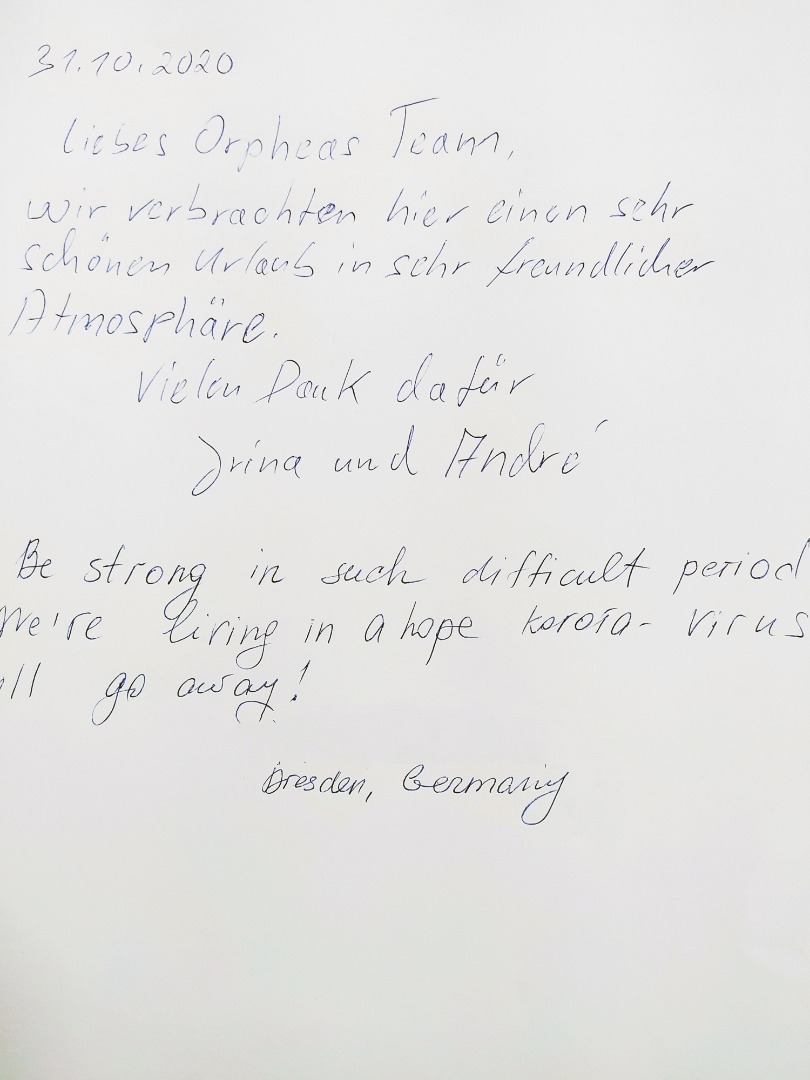 31.10.2020
liebes Orpheas Team,
wir verbrachten hier einen sehr
schönen Urlaub in sehr freundlicher
Atmosphäre.
Vielen Dank dafür
Irina und André
Be strong in such difficult period
We're living in a hope korona-virus
ll go away!
Dresden, Germany